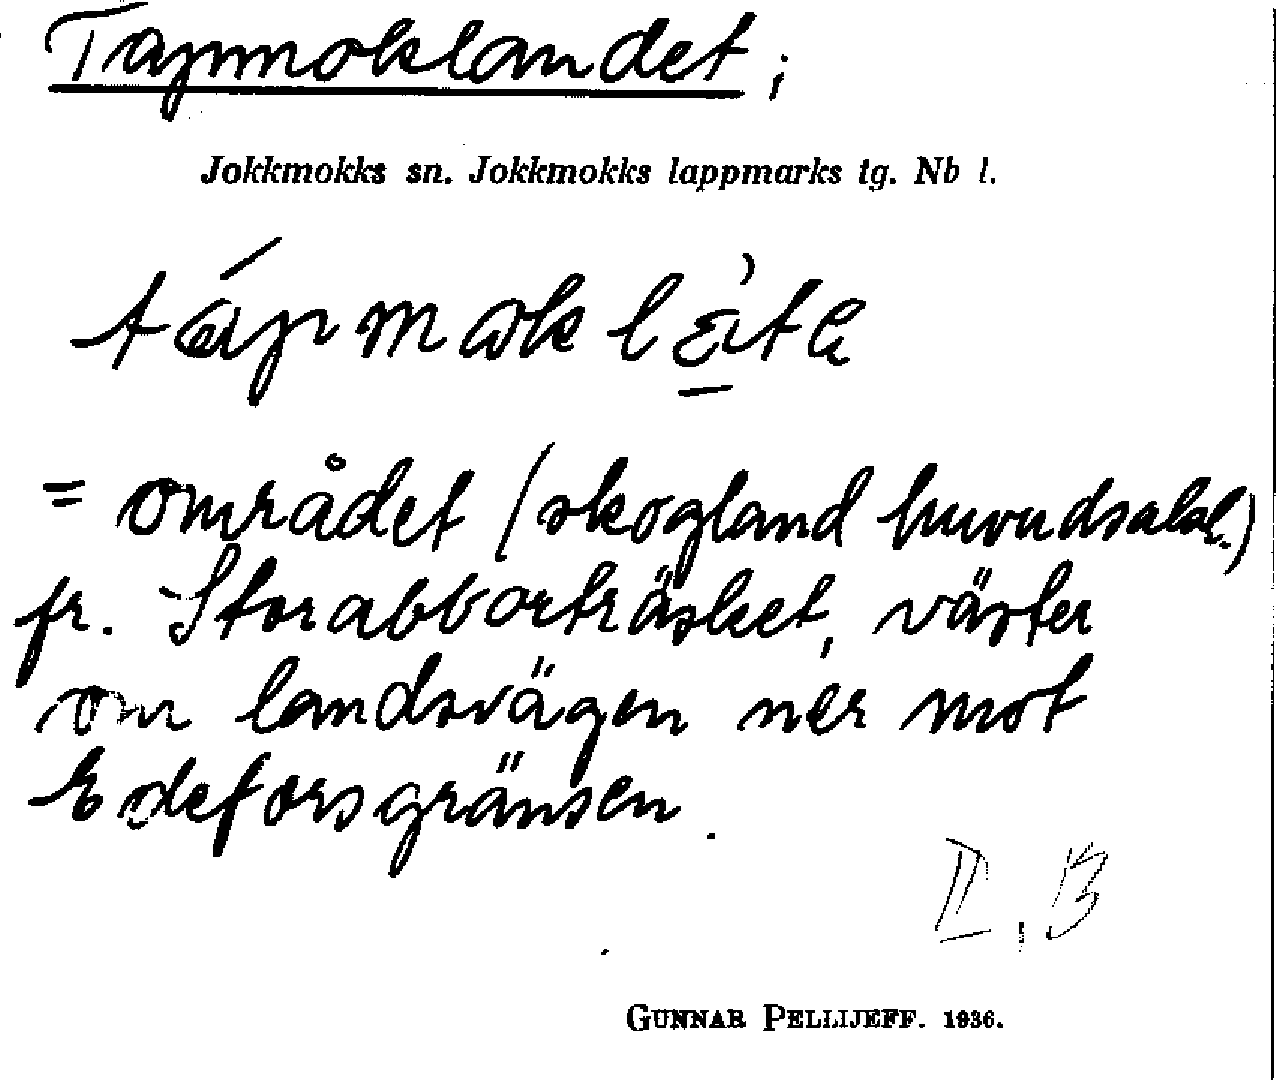 Tapmoklandet,
Jokkmokks sn. Jokkmokks lappmarks tg. Nb l.
= området (skogland huvudsakl.)
fr. Storabborträsket, väster
om landsvägen ner mot
Edeforsgränsen.
II, B
GUNNAR PELLIJEFF. 1936.